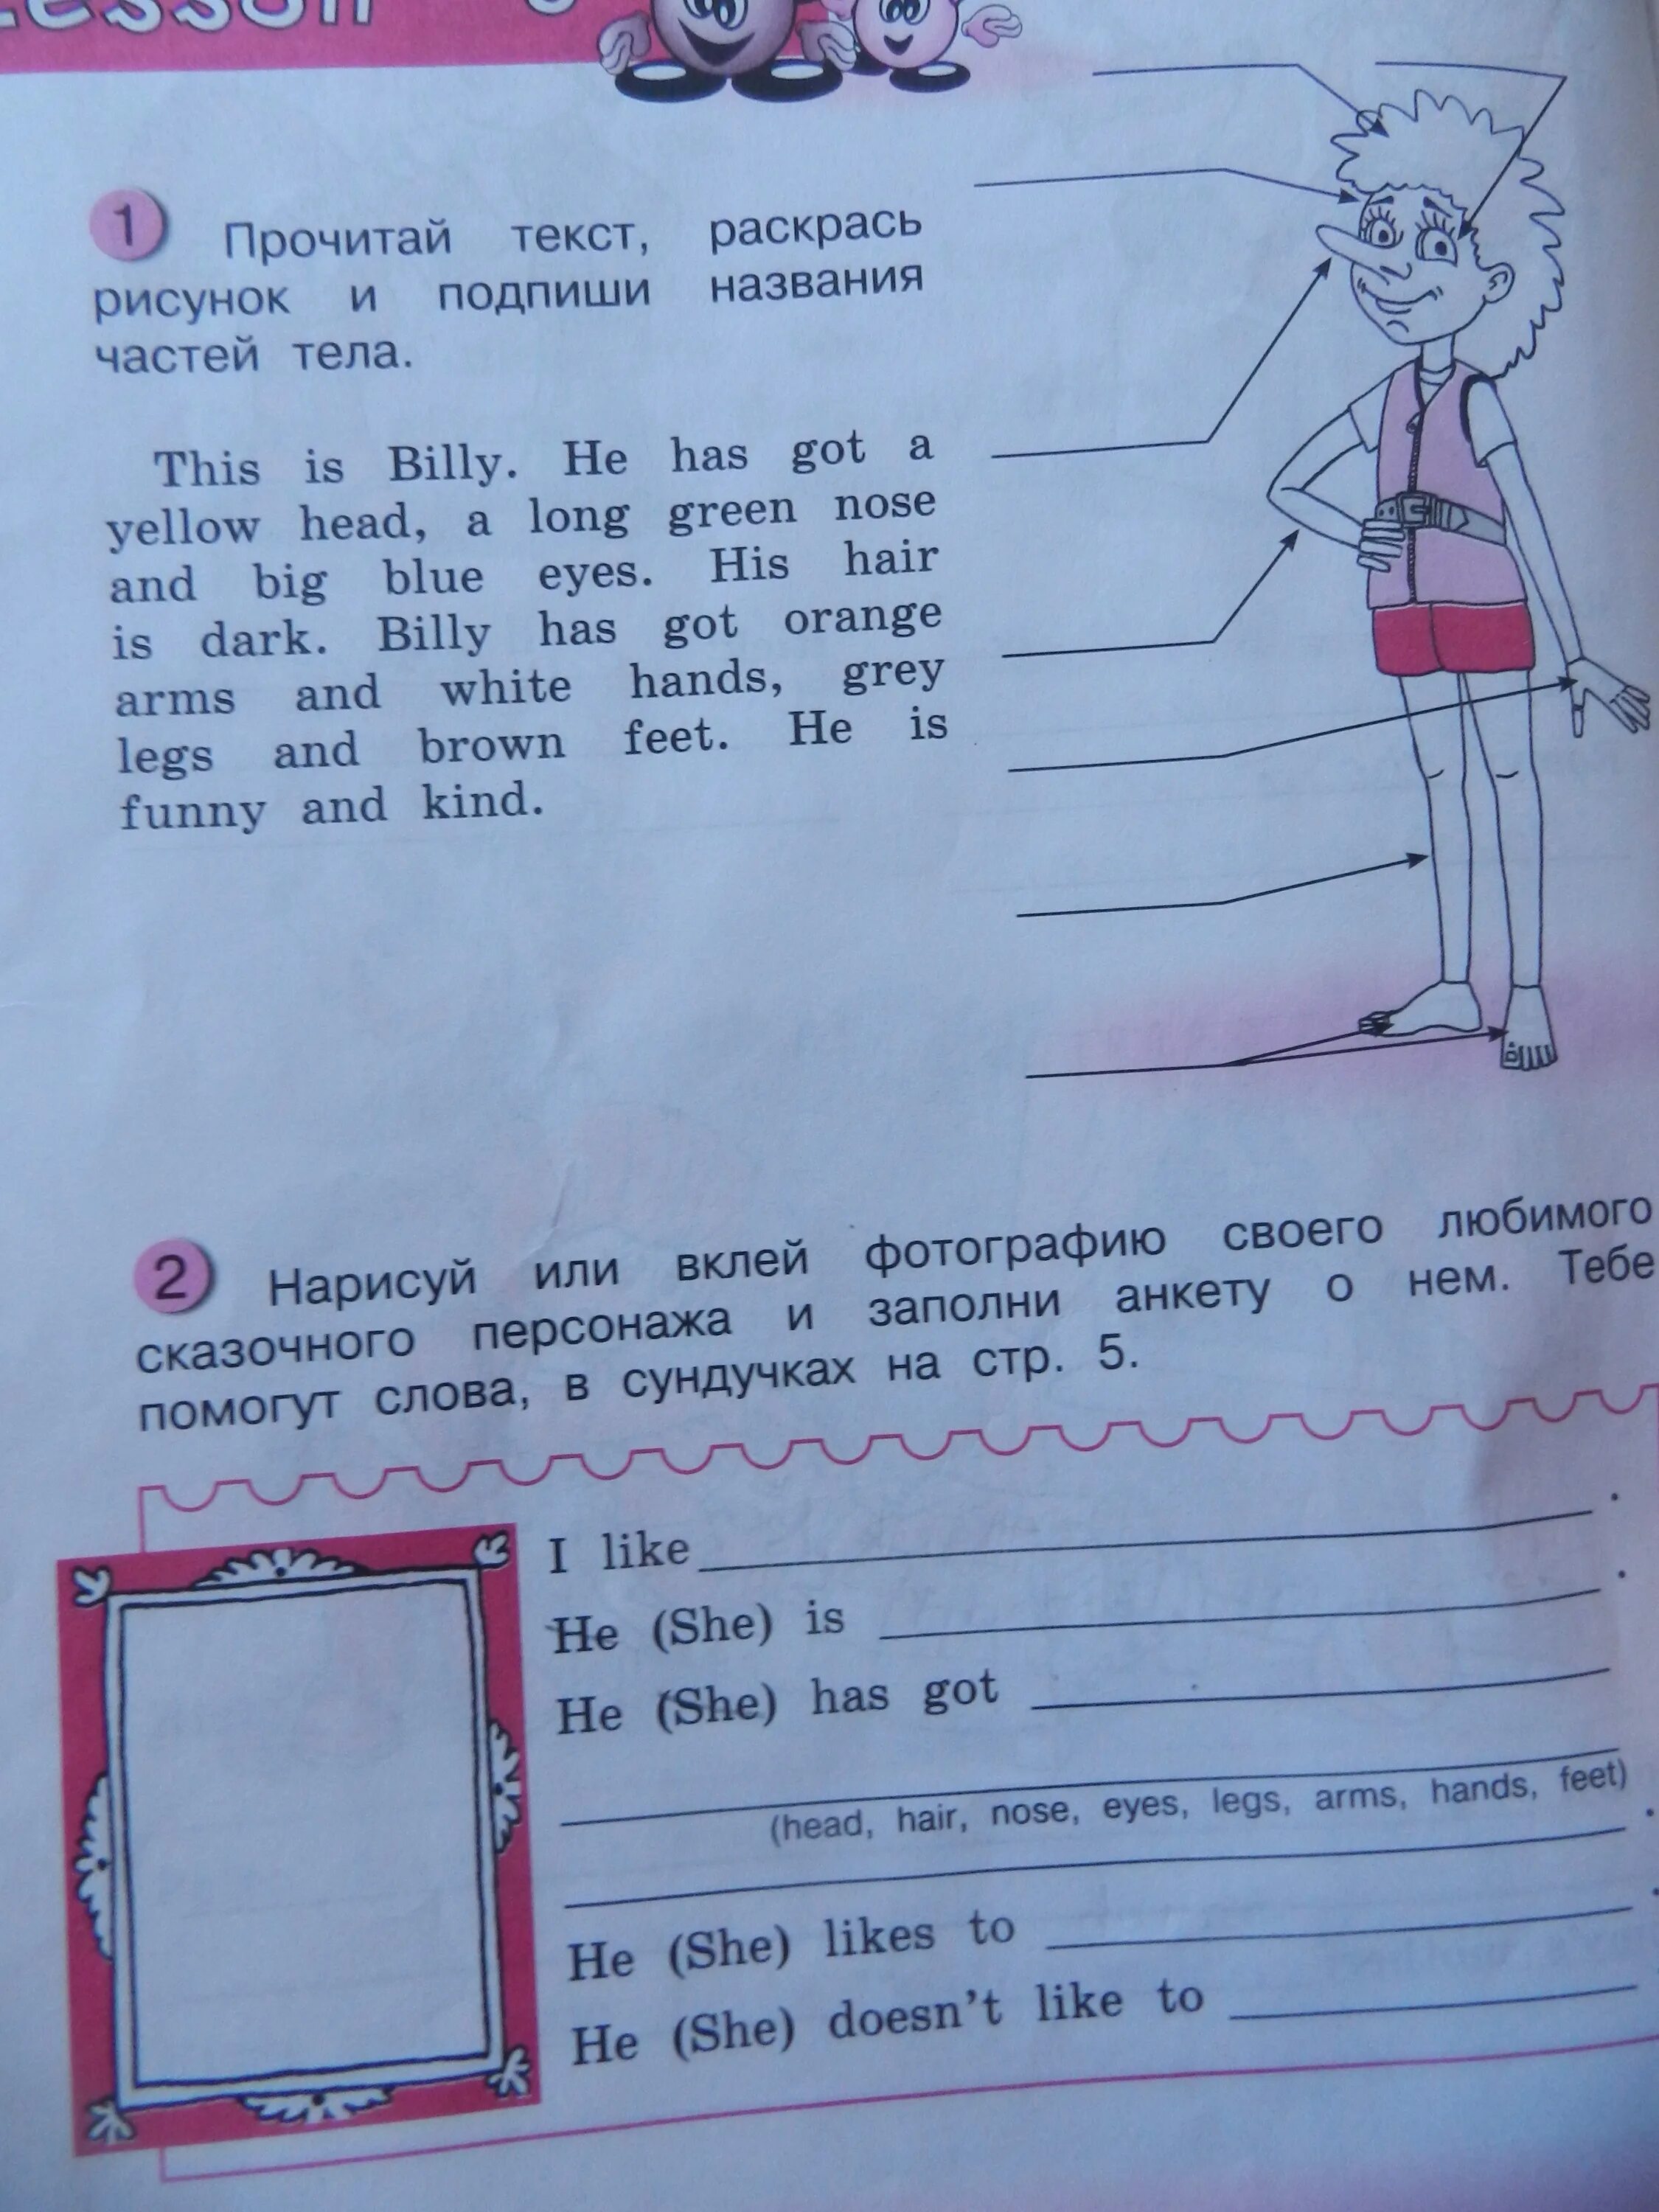 Lesson
1 Прочитай текст, раскрась
рисунок и подпиши названия
частей тела.
This is Billy. He has got a
yellow head, a long green nose
and big blue eyes. His hair
is dark. Billy has got orange
arms and white hands, grey
legs and brown feet. He is
funny and kind.
2 Нарисуй или вклей фотографию своего любимого
сказочного персонажа и заполни анкету о нем. Тебе
помогут слова, в сундучках на стр. 5.
I like .
He (She) is .
He (She) has got
(head, hair, nose, eyes, legs, arms, hands, feet)
.
He (She) likes to .
He (She) doesn't like to